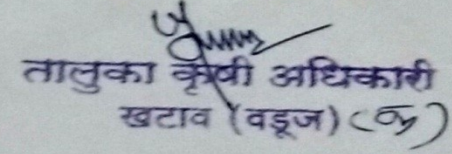 तालुका कृषी अधिकारी
खटाव (वडूज)